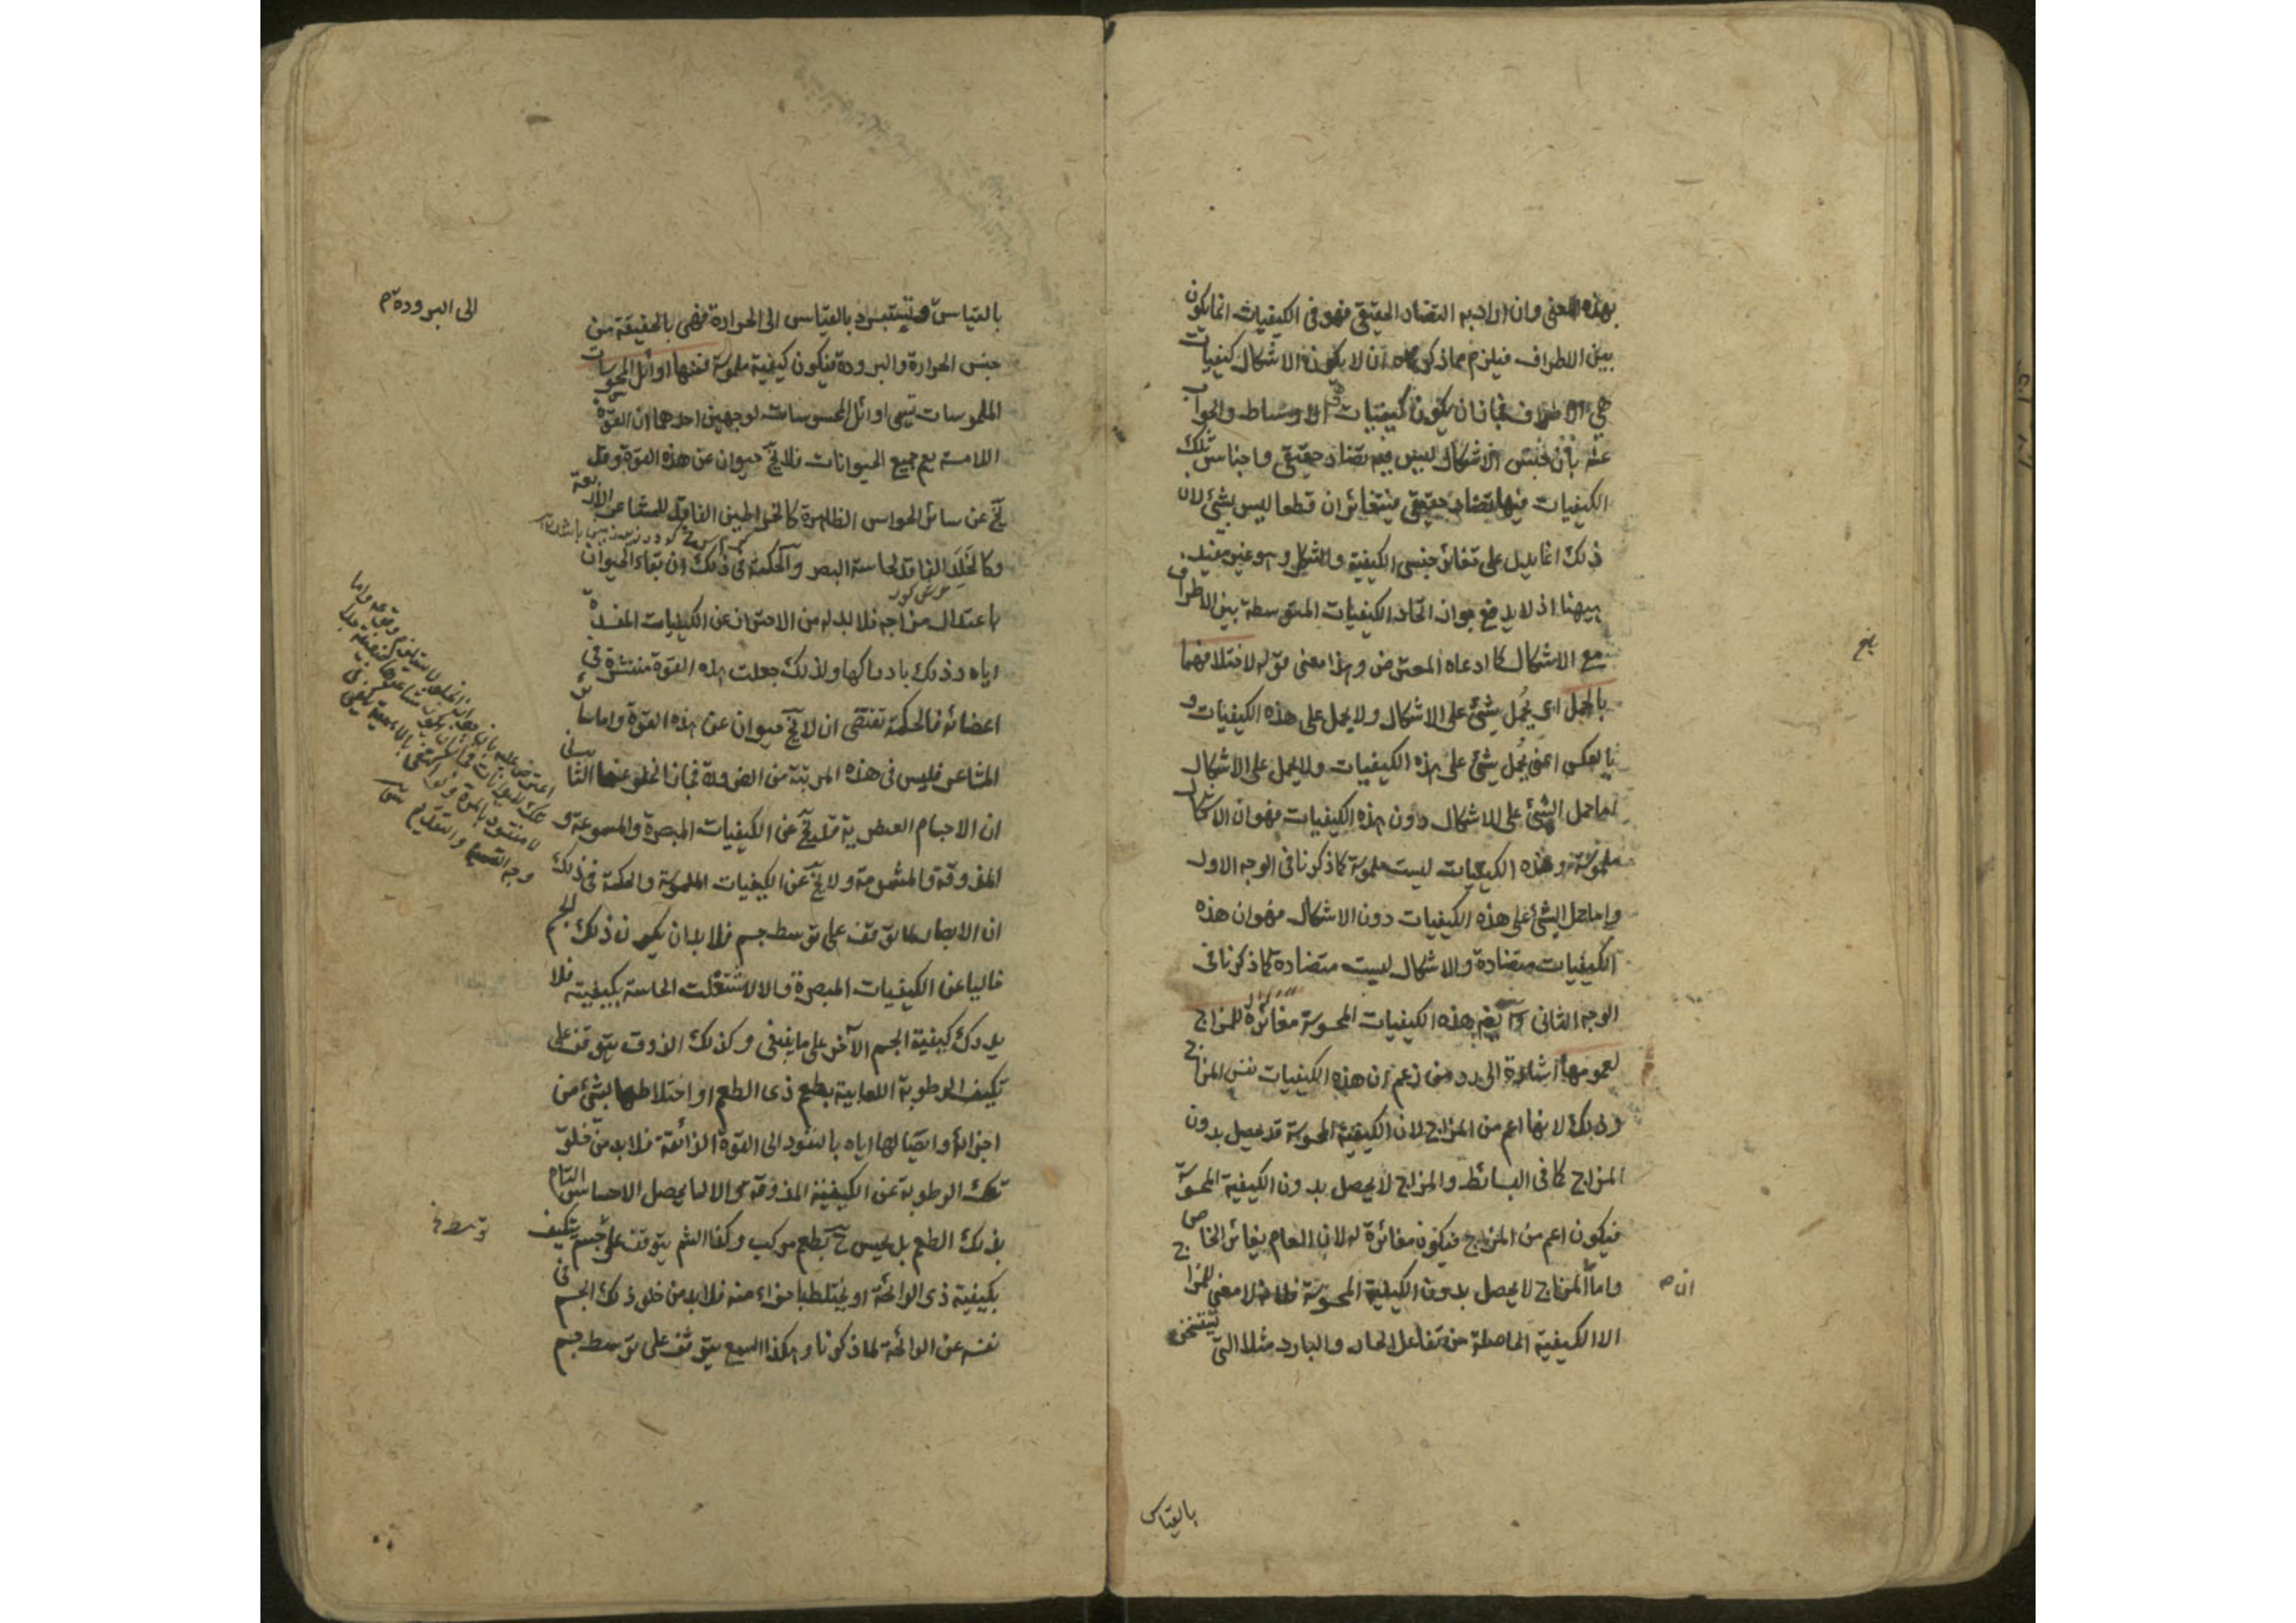 بهذا المعنى وان اراد به التضاد الحقيقى فهو فى الكيفيات انما يكون
بين الاطراف فيلزم مما ذكر ان لا يكون الاشكال كيفيات
هى الاطراف فجاز ان يكون كيفيات هى الاوساط والجواب
عنه بان جنس الاشكال ليس فيه تضاد حقيقى واجناس تلك
الكيفيات فيها تضاد حقيقى فيتغائران قطعا ليس بشئ لان
ذلك انما يدل على تغائر جنسى الكيفية والشكل وهو غير مفيد
ههنا اذ لا يدفع جواز اتحاد الكيفيات المتوسطة بين الاطراف
مع الاشكال كما ادعاه المعترض وهذا معنى قوله لاختلافهما
بالحمل اى يحمل شئ على الاشكال ولا يحمل على هذه الكيفيات و
بالعكس اعنى يحمل شئ على هذه الكيفيات ولا يحمل على الاشكال
اما حمل الشئ على الاشكال دون هذه الكيفيات فهو ان الاشكال
ملموسة وهذه الكيفيات ليست ملموسة كما ذكرنا فى الوجه الاول
واما حمل الشئ على هذه الكيفيات دون الاشكال فهو ان هذه
الكيفيات متضادة والاشكال ليست متضادة كما ذكرنا فى
الوجه الثانى هذه الكيفيات المحسوسة مغائرة للمزاج
لعمومها اشارة الى رد من زعم ان هذه الكيفيات نفس المزاج
وذلك لانها اعم من المزاج لان الكيفية المحسوسة قد يحصل بدون
المزاج كما فى البسائط والمزاج لا يحصل بدون الكيفية المحسوسة
فيكون اعم من المزاج فيكون مغائرة له لان العام يغائر الخاص
واما المزاج لا يحصل بدون الكيفية المحسوسة لا معنى للمزاج
ان
الا الكيفية الحاصلة من تفاعل الحار والبارد مثلا التى تستسخن
بالقياس
بالقياس وتستبرد بالقياس الى الحرارة فهى بالحقيقة من
الى البرودة
جنس الحرارة والبرودة فيكون كيفية ملموسة فمنها اوائل المحسوسات
الملموسات تسمى اوائل المحسوسات لوجهين احدهما ان القوة
اللامسة يعم جميع الحيوانات فلا يخ حيوان عن هذه القوة وقد
يخ عن سائر الحواس الظاهرة كالخراطين الفاقد للمشاعر الاربعة
وكالخلد الفاقد لحاسة البصر والحكمة فى ذلك ان بقاء الحيوان
باعتدال مزاجه فلا بد له من الاحتراز عن الكيفيات المفسدة
اياه وذلك بادراكها ولذلك جعلت هذه القوة منتشرة فى
اعضائه فالحكمة تقتضى ان لا يخ حيوان عن هذه القوة واما سائر
المشاعر فليس فى هذه المرتبة من الضرورة فجاز الخلو عنها الثانى
ان الاجسام العنصرية قد يخ عن الكيفيات المبصرة والمسموعة و
المذوقة والمشمومة ولا يخ عن الكيفيات الملموسة والحكمة فى ذلك
ان الابصار لما توقف على توسط جسم فلا بد ان يكون ذلك الجسم
خاليا عن الكيفيات المبصرة والا لاشتغلت الحاسة بكيفيته فلا
يدرك كيفية الجسم الآخر على ما ينبغى وكذلك الذوق يتوقف على
تكيف الرطوبة اللعابية بطعم ذى الطعم او اختلاطها بشئ من
اجزائه وايصالها اياه بالنفوذ الى القوة الذائقة فلا بد من خلو
تلك الرطوبة عن الكيفية المذوقة والا لما يحصل الاحساس التام
بذلك الطعم بل يحس ح بطعم مركب وكذا الشم يتوقف على جسم يتكيف
توسط
بكيفية ذى الرائحة او يختلط باجزاء منه فلا بد من خلو ذلك الجسم فى
نفسه عن الرائحة لما ذكرنا وهكذا السمع يتوقف على توسط جسم